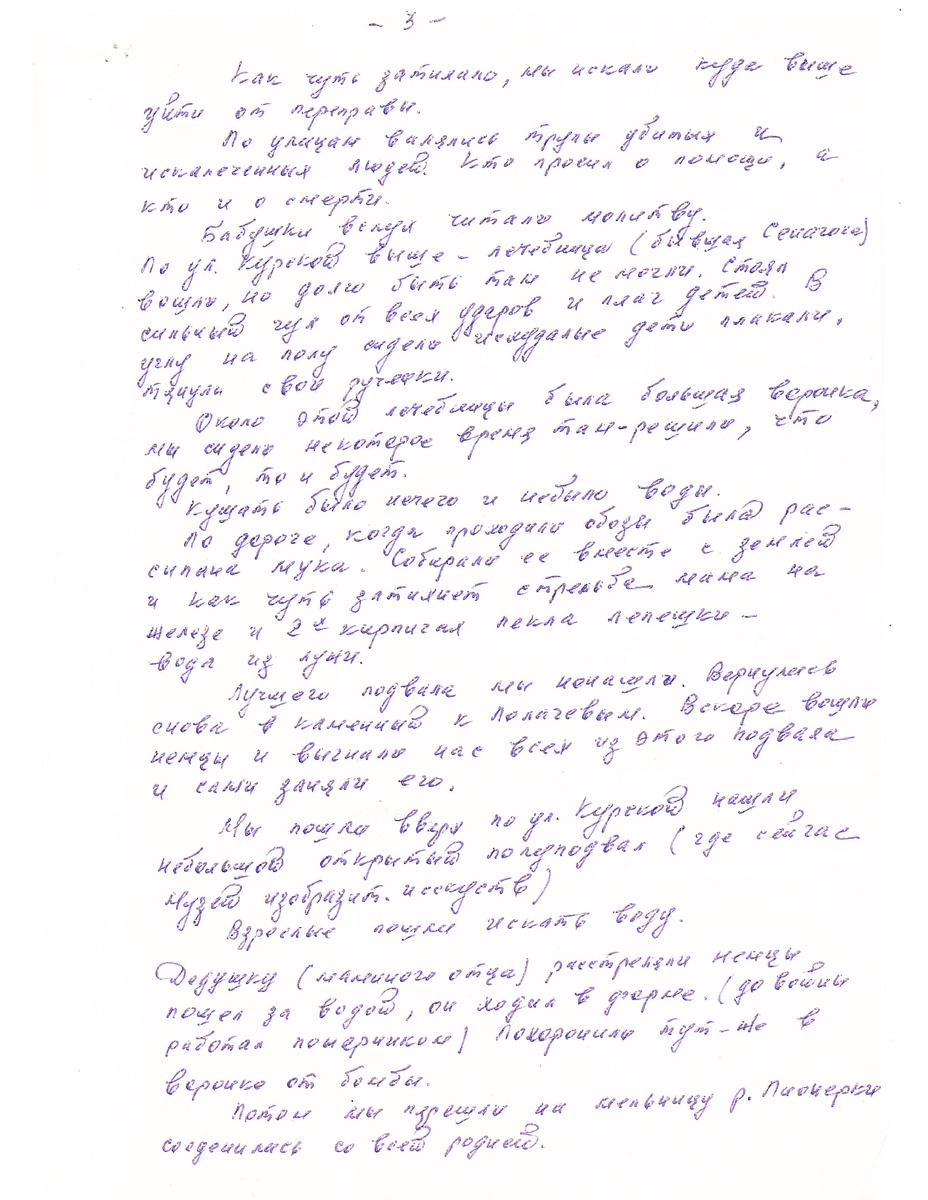 - 3 -
Как чуть затихало, мы искали куда выше
уйти от переправы.
По улицам валялись трупы убитых и
искалеченных людей. Кто просил о помощи, а
кто и о смерти.
Бабушки вслух читали молитву.
По ул. Курской выше - лечебница (бывшая Сенагога)
вошли, но долго быть там не могли. Стоял
сильный гул от всех ударов и плач детей. В
углу на полу сидели исхудалые дети плакали,
тянули свои ручёнки.
Около этой лечебницы была большая воронка,
мы сидели некоторое время там-решили, что
будет, то и будет.
Кушать было нечего и небыло воды.
По дороге, когда проходили обозы была рас-
сыпана мука. Собирали ее вместе с землей
и как чуть затихнет стрельба мама на
железе и 2х кирпичах пекла лепешки -
вода из лужи.
Лучшего подвала мы ненашли. Вернулись
снова в каменный к Лапачевым. Вскоре вошли
немцы и выгнали нас всех из этого подвала
и сами заняли его.
Мы пошли вверх по ул. Курской нашли
небольшой открытый полуподвал (где сейчас
музей изобразит. исскуств)
Взрослые пошли искать воду.
Дедушку (маминого отца) расстреляли немцы
пошел за водой, он ходил в форме. (до войны
работал пожарником) Похоронили тут-же в
воронке от бомбы.
Потом мы перешли на мельницу р. Пионерки
соеденились со всей родней.